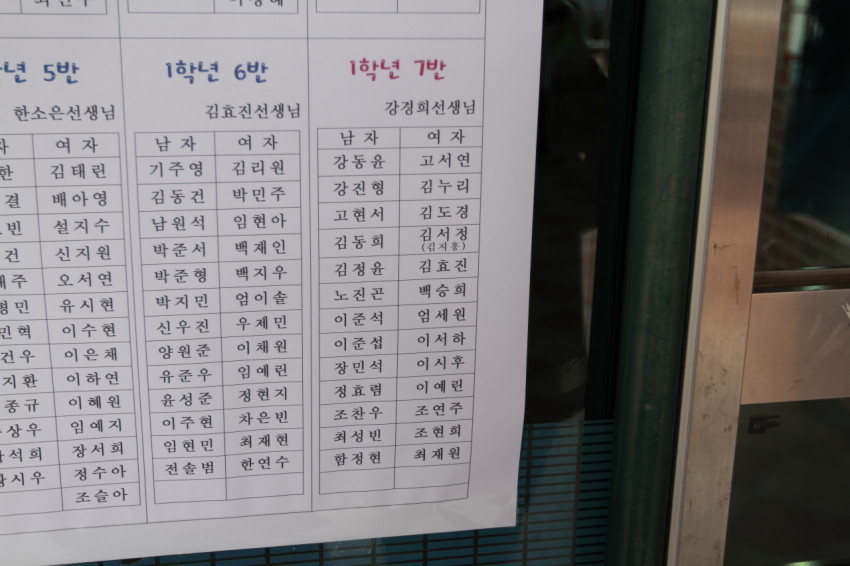 5반 1학년 6반 1학년 7반
한소은선생님 김효진선생님 강경희선생님
여자 남자 여자 남자 여자
김태린 기주영 김리원 강동윤 고서연
배아영 김동건 박민주 강진형 김누리
설지수 남원석 임현아 고현서 김도경
신지원 박준서 백재인 김동희 김서정
(김지홍)
오서연 박준형 백지우 김정윤 김효진
유시현 박지민 엄이솔 노진곤 백승희
이수현 신우진 우제민 이준석 엄세원
이은채 양원준 이채원 이준섭 이서하
이하연 유준우 임예린 장민석 이시후
이혜원 윤성준 정현지 정효렴 이예린
임예지 이주현 차은빈 조찬우 조연주
장서희 임현민 최재현 최성빈 조현희
정수아 전솔범 한연수 함정현 최재원
조슬아